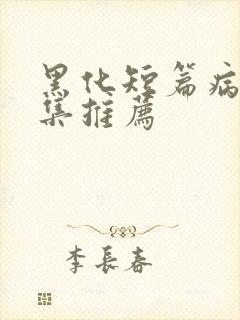 黑化短篇病
集推薦
李長春